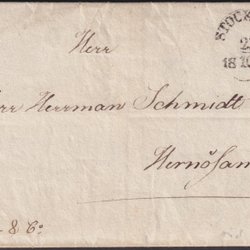 STOCK
18 10
Herr
Herrman Schmidt
Hernösan
8